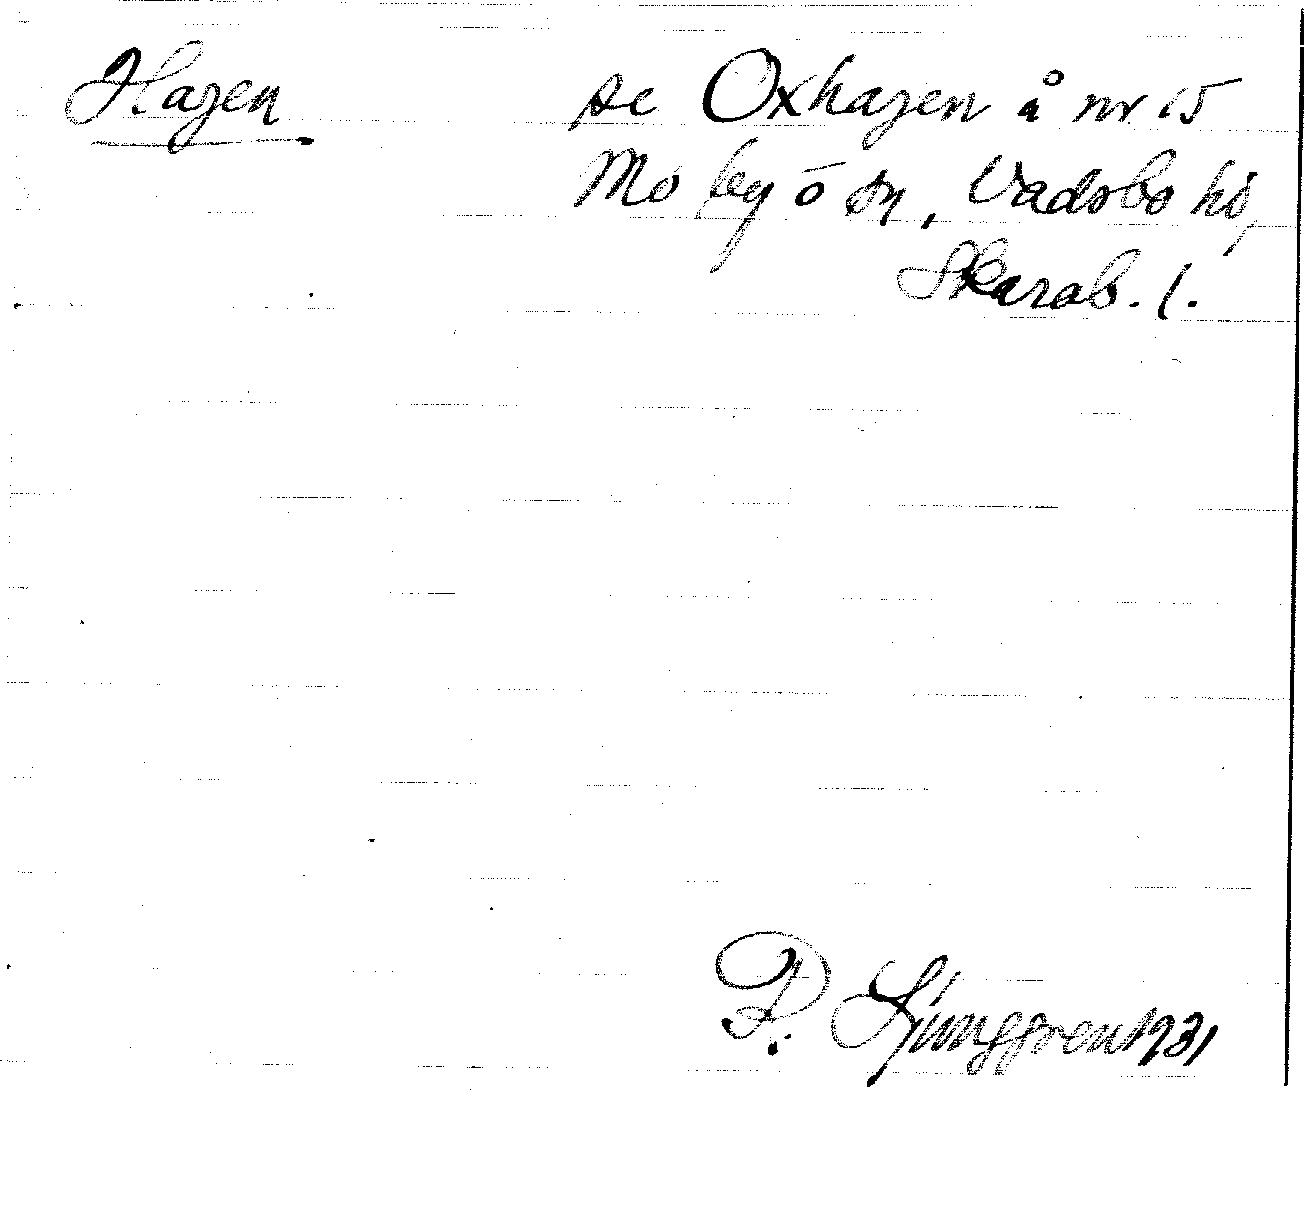 Hagen se Oxhagen å nr 15
Mo by o sn, Vadsbo hd,
Skarab. l.
R. Ljunggren 1931